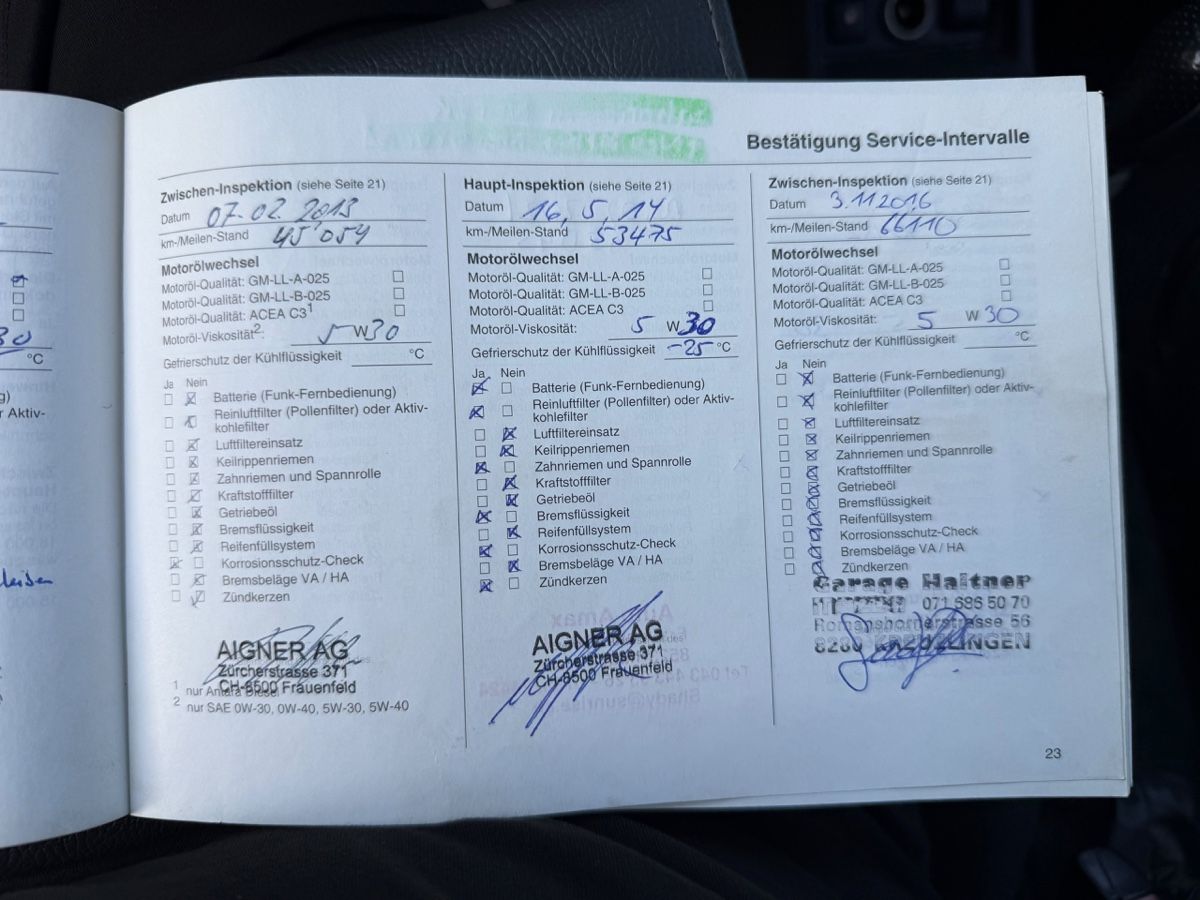 Bestätigung Service-Intervalle
Zwischen-Inspektion (siehe Seite 21)
Datum 07.02.2013
km-/Meilen-Stand 45'054
Motorölwechsel
Motoröl-Qualität: GM-LL-A-025
Motoröl-Qualität: GM-LL-B-025
Motoröl-Qualität: ACEA C3¹
Motoröl-Viskosität²: 5 W30
Gefrierschutz der Kühlflüssigkeit °C
Ja Nein
Batterie (Funk-Fernbedienung)
Reinluftfilter (Pollenfilter) oder Aktiv-
kohlefilter
Luftfiltereinsatz
Keilrippenriemen
Zahnriemen und Spannrolle
Kraftstofffilter
Getriebeöl
Bremsflüssigkeit
Reifenfüllsystem
Korrosionsschutz-Check
Bremsbeläge VA / HA
Zündkerzen
AIGNER AG
Zürcherstrasse 371
CH-8500 Frauenfeld
¹ nur Antara Diesel
² nur SAE 0W-30, 0W-40, 5W-30, 5W-40
Haupt-Inspektion (siehe Seite 21)
Datum 16, 5, 14
km-/Meilen-Stand 53475
Motorölwechsel
Motoröl-Qualität: GM-LL-A-025
Motoröl-Qualität: GM-LL-B-025
Motoröl-Qualität: ACEA C3
Motoröl-Viskosität: 5 W30
Gefrierschutz der Kühlflüssigkeit -25 °C
Ja Nein
Batterie (Funk-Fernbedienung)
Reinluftfilter (Pollenfilter) oder Aktiv-
kohlefilter
Luftfiltereinsatz
Keilrippenriemen
Zahnriemen und Spannrolle
Kraftstofffilter
Getriebeöl
Bremsflüssigkeit
Reifenfüllsystem
Korrosionsschutz-Check
Bremsbeläge VA / HA
Zündkerzen
AIGNER AG
Zürcherstrasse 371
CH-8500 Frauenfeld
Zwischen-Inspektion (siehe Seite 21)
Datum 3.112016
km-/Meilen-Stand 66110
Motorölwechsel
Motoröl-Qualität: GM-LL-A-025
Motoröl-Qualität: GM-LL-B-025
Motoröl-Qualität: ACEA C3
Motoröl-Viskosität: 5 W 30
Gefrierschutz der Kühlflüssigkeit °C
Ja Nein
Batterie (Funk-Fernbedienung)
Reinluftfilter (Pollenfilter) oder Aktiv-
kohlefilter
Luftfiltereinsatz
Keilrippenriemen
Zahnriemen und Spannrolle
Kraftstofffilter
Getriebeöl
Bremsflüssigkeit
Reifenfüllsystem
Korrosionsschutz-Check
Bremsbeläge VA / HA
Zündkerzen
Garage Haltner
071 686 50 70
Romanshornerstrasse 56
8280 KREUZLINGEN
23